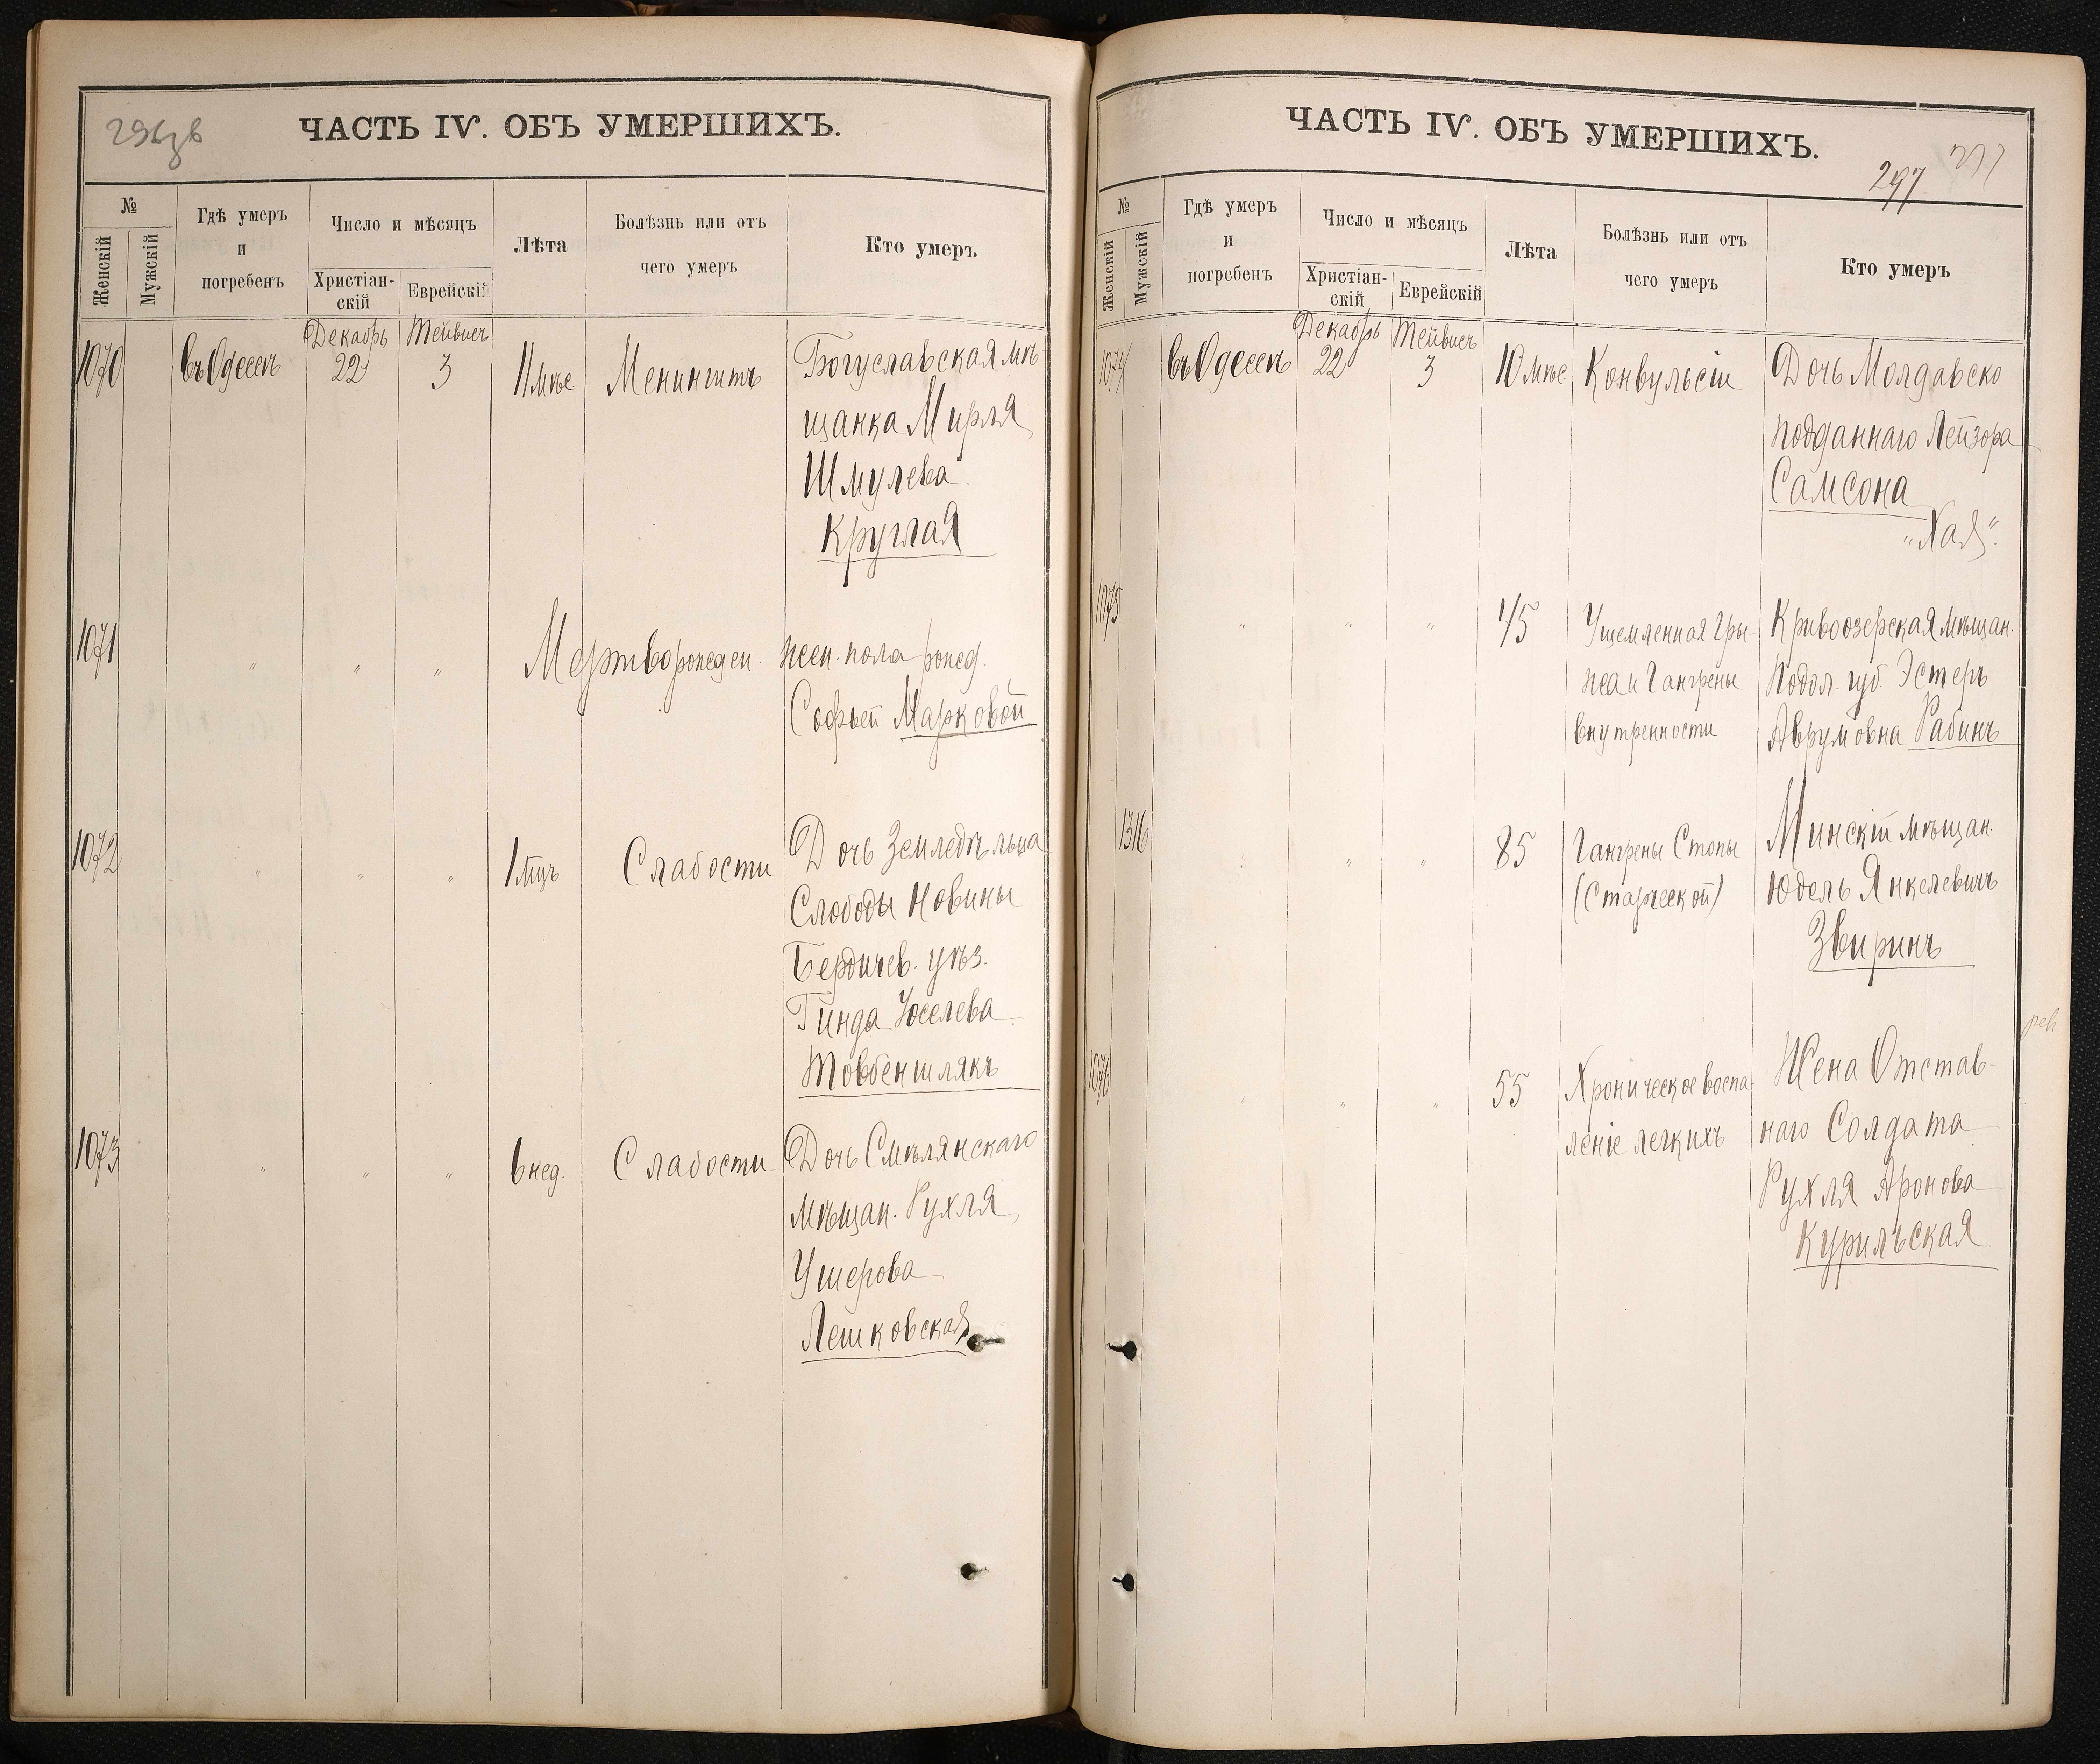 296 зв
ЧАСТЬ IV. ОБЪ УМЕРШИХЪ.
№
Женскій
Мужскій
Гдѣ умеръ
и
погребенъ
Число и мѣсяцъ
Христіан-
скій
Еврейскій
Лѣта
Болѣзнь или отъ
чего умеръ
Кто умеръ
Декабрь Тейвисъ
1070 въ Одессѣ 22 3 11 мѣс Менингитъ Богуславская мѣ-
щанка Мирля
Шмулева
Круглая
1071 " " " Мертворожден. жен. пола рожд.
Софьей Марковой
1072 " " " 1 мцъ Слабости Дочь Земледѣльца
Слободы Новины
Бердичев. уѣз.
Гинда Іоселева
Товбеншлякъ
1073 " " " 6 нед. Слабости Дочь Смѣлянскаго
мѣщан. Рухля
Ушерова
Лешковская
ЧАСТЬ IV. ОБЪ УМЕРШИХЪ.
297 297
№
Женскій
Мужскій
Гдѣ умеръ
и
погребенъ
Число и мѣсяцъ
Христіан-
скій
Еврейскій
Лѣта
Болѣзнь или отъ
чего умеръ
Кто умеръ
Декабрь Тейвисъ
1074 въ Одессѣ 22 3 10 мѣс Конвульсіи Дочь Молдавско
подданнаго Лейзора
Самсона
"Хая".
1075 " " " 45 Ущемленная Гры- Кривоозерская мѣщан.
жа и Гангрены Подол. губ. Эстеръ
внутренности Аврумовна Рабинъ
1316 " " " 85 Гангрены Стопы Минскій мѣщан.
(Старческой) Юдель Янкелевичъ
Звиринъ
1076 " " " 55 Хроническое воспа- Жена Отстав-
леніе легкихъ наго Солдата
Рухля Аронова
Курильская